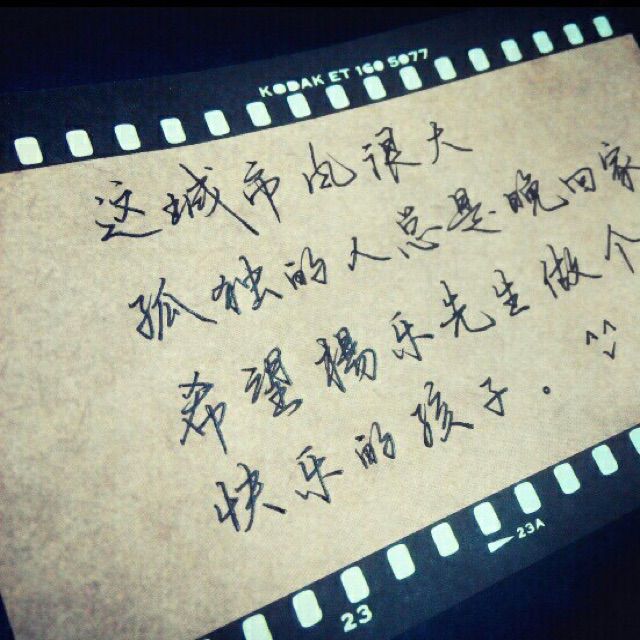 KODAK ET 160 5077
这城市风很大
孤独的人总是晚回家
希望杨乐先生做个
快乐的孩子。^_^
23A
23